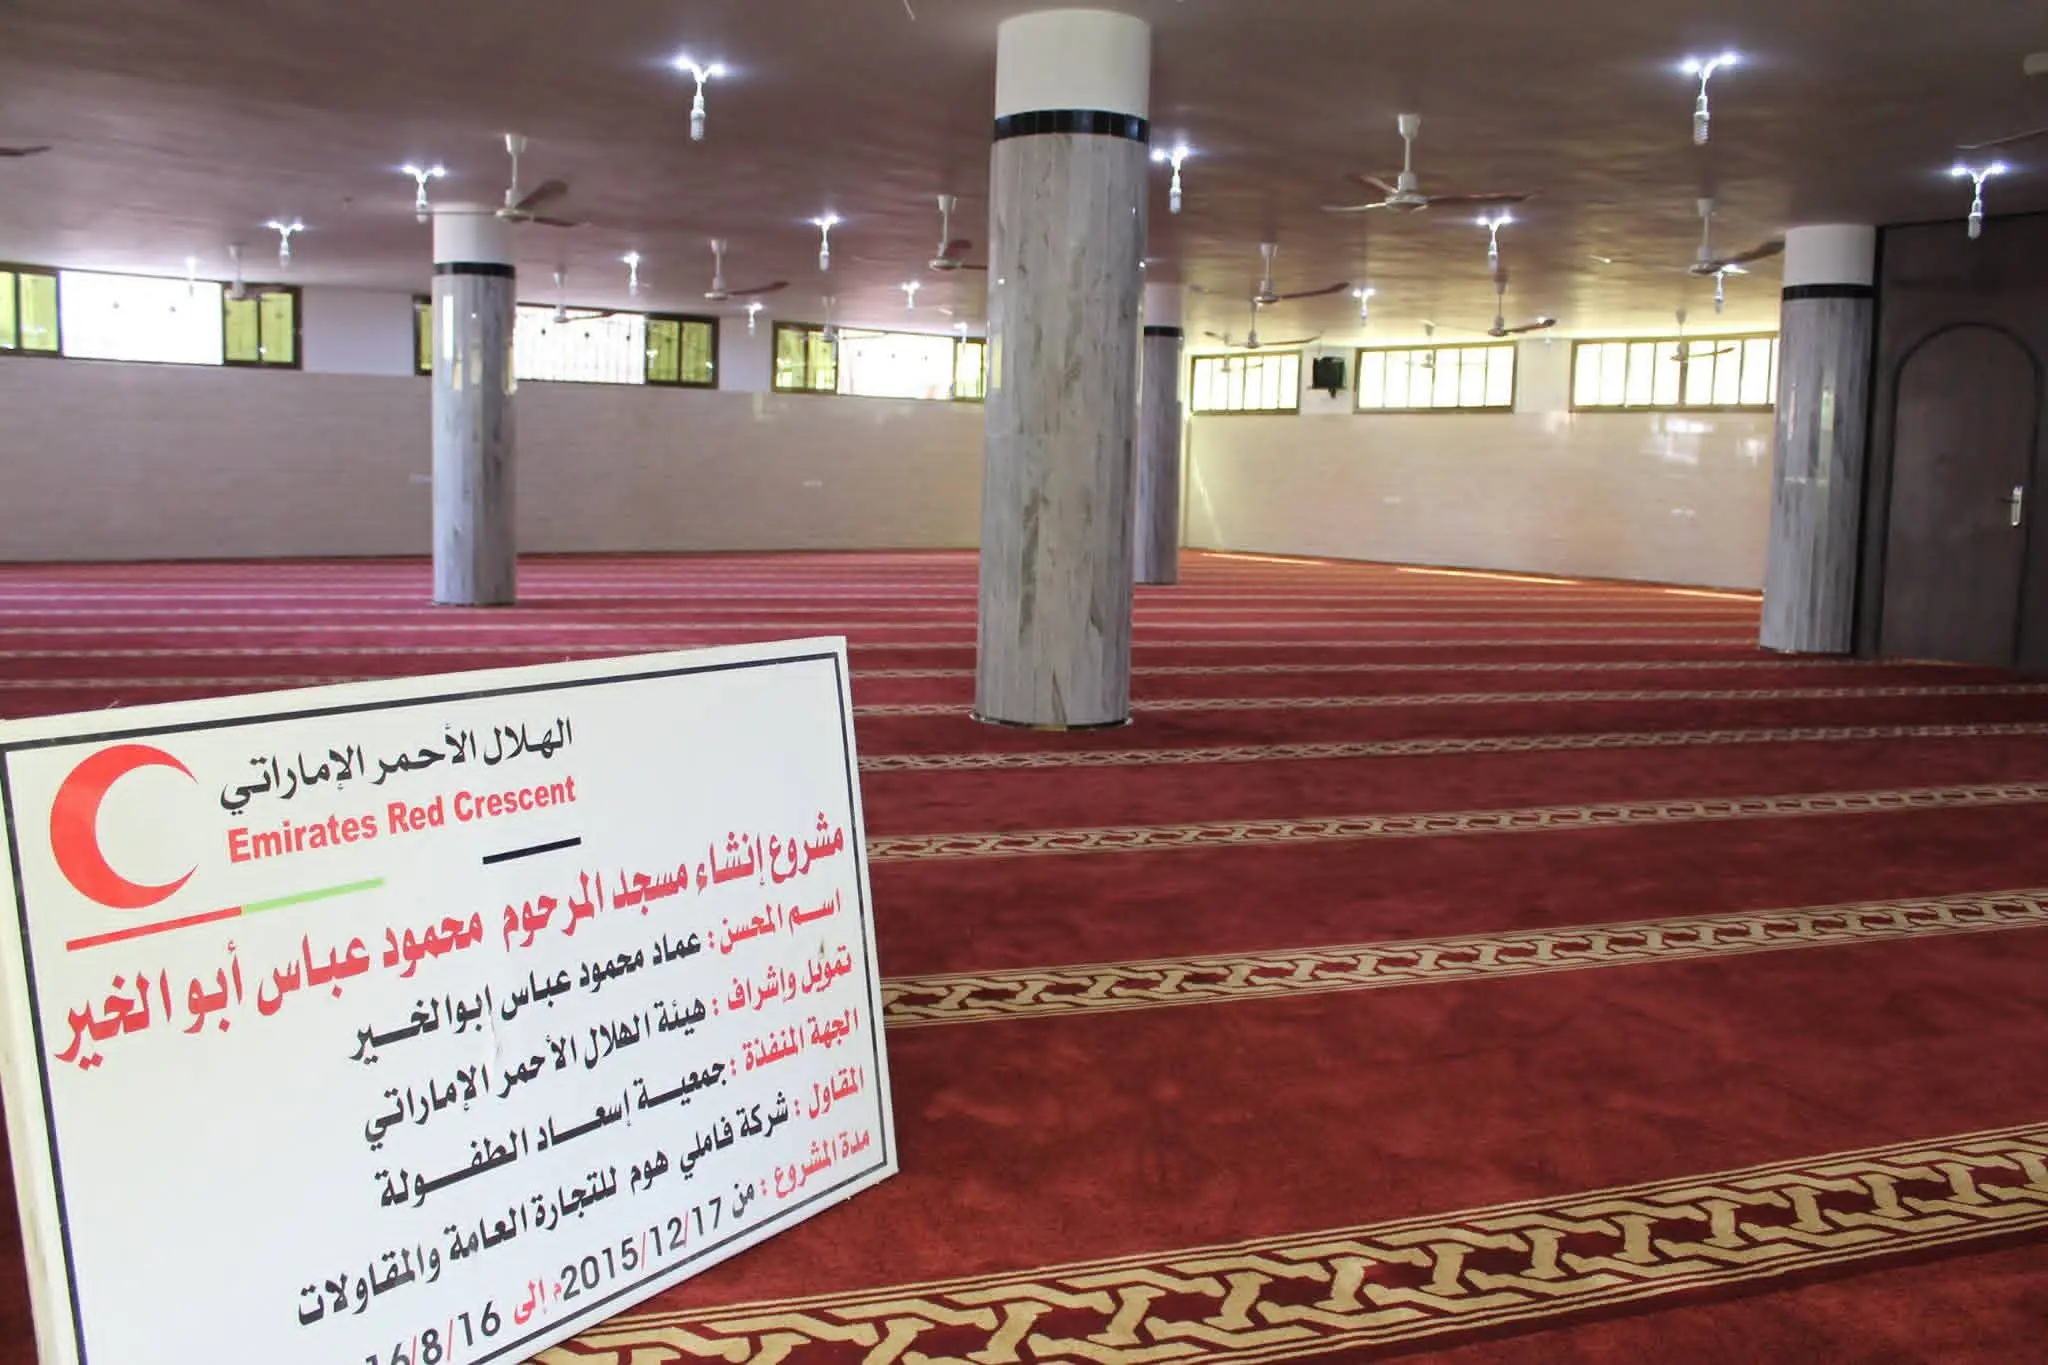 الهلال الأحمر الإماراتي
Emirates Red Crescent
مشروع إنشاء مسجد المرحوم محمود عباس أبو الخير
اسم المحسن : عماد محمود عباس ابو الخير
تمويل وإشراف : هيئة الهلال الأحمر الإماراتي
الجهة المنفذة : جمعية إسعاد الطفولة
المقاول : شركة فاملي هوم للتجارة العامة والمقاولات
مدة المشروع : من 2015/12/17م إلى
16/8/16